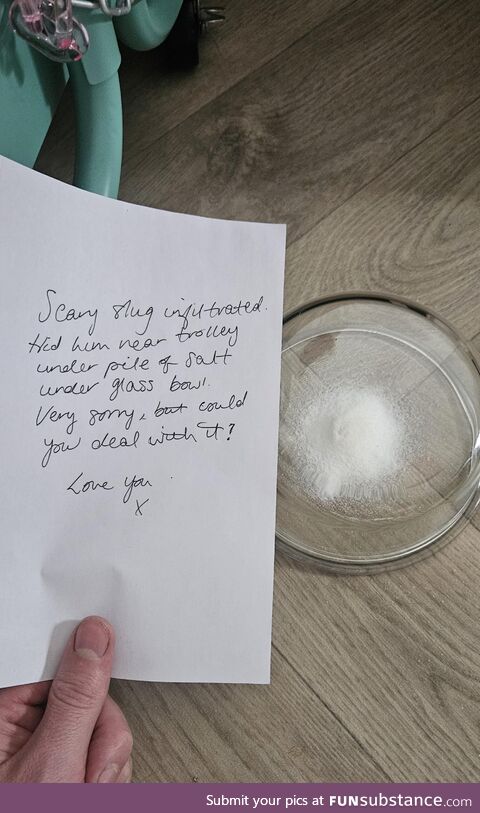 Scary slug infiltrated.
Hid him near trolley
under pile of salt
under glass bowl.
Very sorry, but could
you deal with it?
Love you
X
Submit your pics at FUNsubstance.com